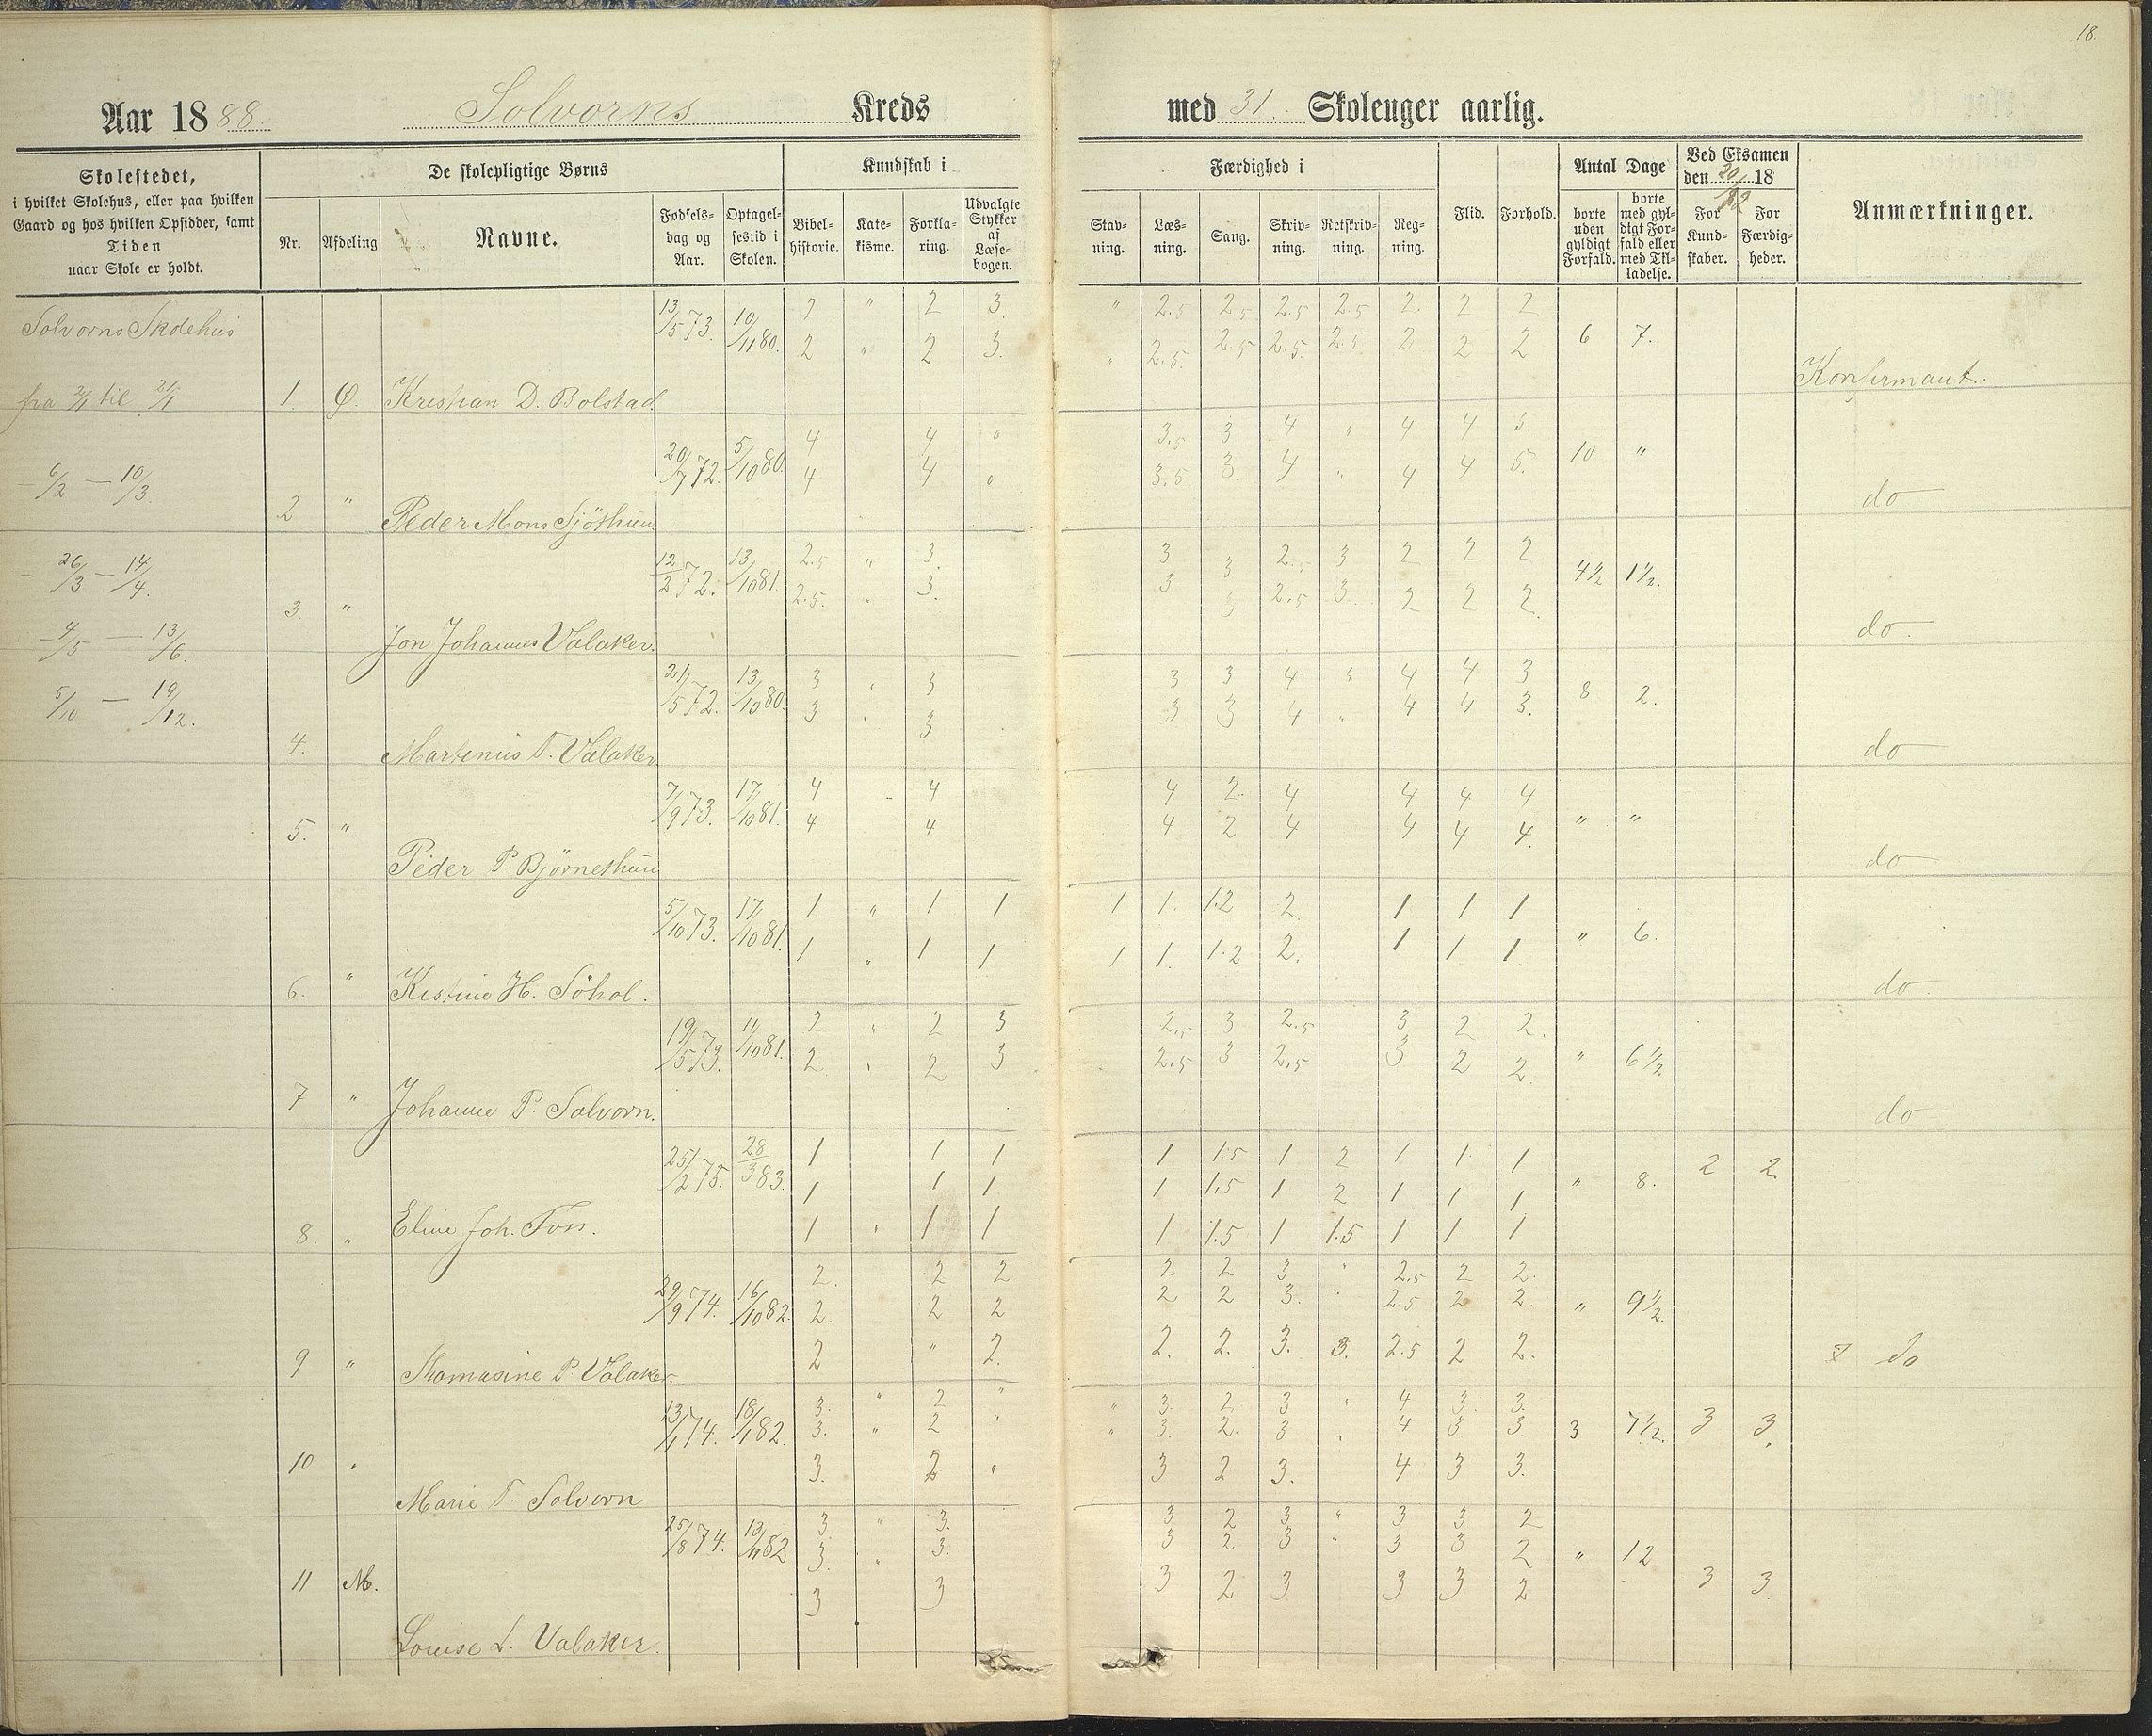 18.
Aar 1888. Solvorns Kreds med 31. Skoleuger aarlig.
Skolestedet, i hvilket Skolehus, eller paa hvilken Gaard og hos hvilken Opsidder, samt Tiden naar Skole er holdt.
De skolepligtige Børns
Nr.
Afdeling
Navne.
Fødsels-dag og Aar.
Optagel-sestid i Skolen.
Kundskab i
Bibel-historie.
Kate-kisme.
Forkla-ring.
Udvalgte Stykker af Læse-bogen.
Færdighed i
Stav-ning.
Læs-ning.
Sang.
Skriv-ning.
Retskriv-ning.
Reg-ning.
Flid.
Forhold.
Antal Dage
borte uden gyldigt Forfald.
borte med gyl-digt For-fald eller med Til-ladelse.
Ved Eksamen den 20/12 18
For Kund-skaber.
For Færdig-heder.
Anmærkninger.
Solvorns Skolehus
fra 2/1 til 21/1
- 6/2 - 10/3.
- 26/3 - 14/4.
- 4/5 - 13/6.
5/10 - 19/12.
13/5 73. 10/11 80. 2 " 2 3. " 2.5 2.5 2.5 2.5 2 2 2
2 " 2 3. " 2.5. 2.5 2.5. 2.5 2 2 2 6 7.
1. Ø. Kristian D. Bolstad. Konfirmant.
20/7 72. 5/10 80. 4 4 " 3.5 3 4 " 4 4 5.
4 4 " 3.5. 3. 4 " 4 4 5. 10 "
2 " Peder Mons Sjöthun. do
12/2 72. 13/10 81. 2.5 " 3. 3 3 2.5 3 2 2 2
2.5. " 3. 3 3 2.5 3. 2 2 2. 4½ 1½.
3. " Jon Johannes Valaker. do.
21/5 72. 13/10 80. 3 " 3 3 3 4 " 4 4 3
3 " 3 3 3 4 " 4 4 3. 8 2.
4. Martinus T. Valaker do
7/9 73. 17/10 81. 4 4 4 2. 4 4 4 4
4 4 4 2 4 4 4 4. " "
5. " Peder P. Björnethun do
5/10 73. 17/10 81. 1 " 1 1 1 1. 1.2 2. 1 1 1
1 " 1 1 1 1. 1.2 2. 1 1. 1. " 6.
6. " Kistine H. Söhol. do.
19/5 73. 11/10 81. 2 " 2 3 2.5 3 2.5 3 2 2.
2. " 2 3 2.5 3 2.5 3 2 2. " 6½
7 " Johanne P. Solvorn. do
25/2 75. 28/3 83. 1 1 1 1 1.5 1 2 1 1 1
1 1 1. 1 1.5 1 2 1 1 1 " 8. 2 2.
8. " Eline Joh. Foss. 1 " 1 1 1 1.5 1 1.5 1 1 1
29/9 74. 16/10 82. 2. 2 2 2 2 3 " 2.5 2 2.
2. 2 2 2 2 3. " 2.5 2 2. " 9½.
9 " Thomasine P. Valaker. 2 " 2. 2. 2. 3. 3. 2.5 2 2. do
13/1 74. 18/1 82. 3. " 2 " " 3. 2 3 " 4 3. 3.
3. " 2 " " 3. 2. 3 " 4 3 3. 3 7½. 3 3.
10 " Marie T. Solvorn 3. 2 " 3 2 3. 4 3 3.
25/8 74. 13/11 82 3. " 3. 3 2 3 " 3 3 2
3. " 3. 3 2 3 " 3 3 2 " 12
11 M. Louise L. Valaker. 3 3 3 2 3 3 3 2 3 3.